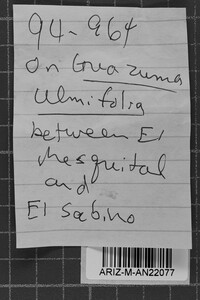 94-964
on Guazuma
ulmifolia
between El
Mesquital
and
El Sabino
ARIZ-M-AN22077